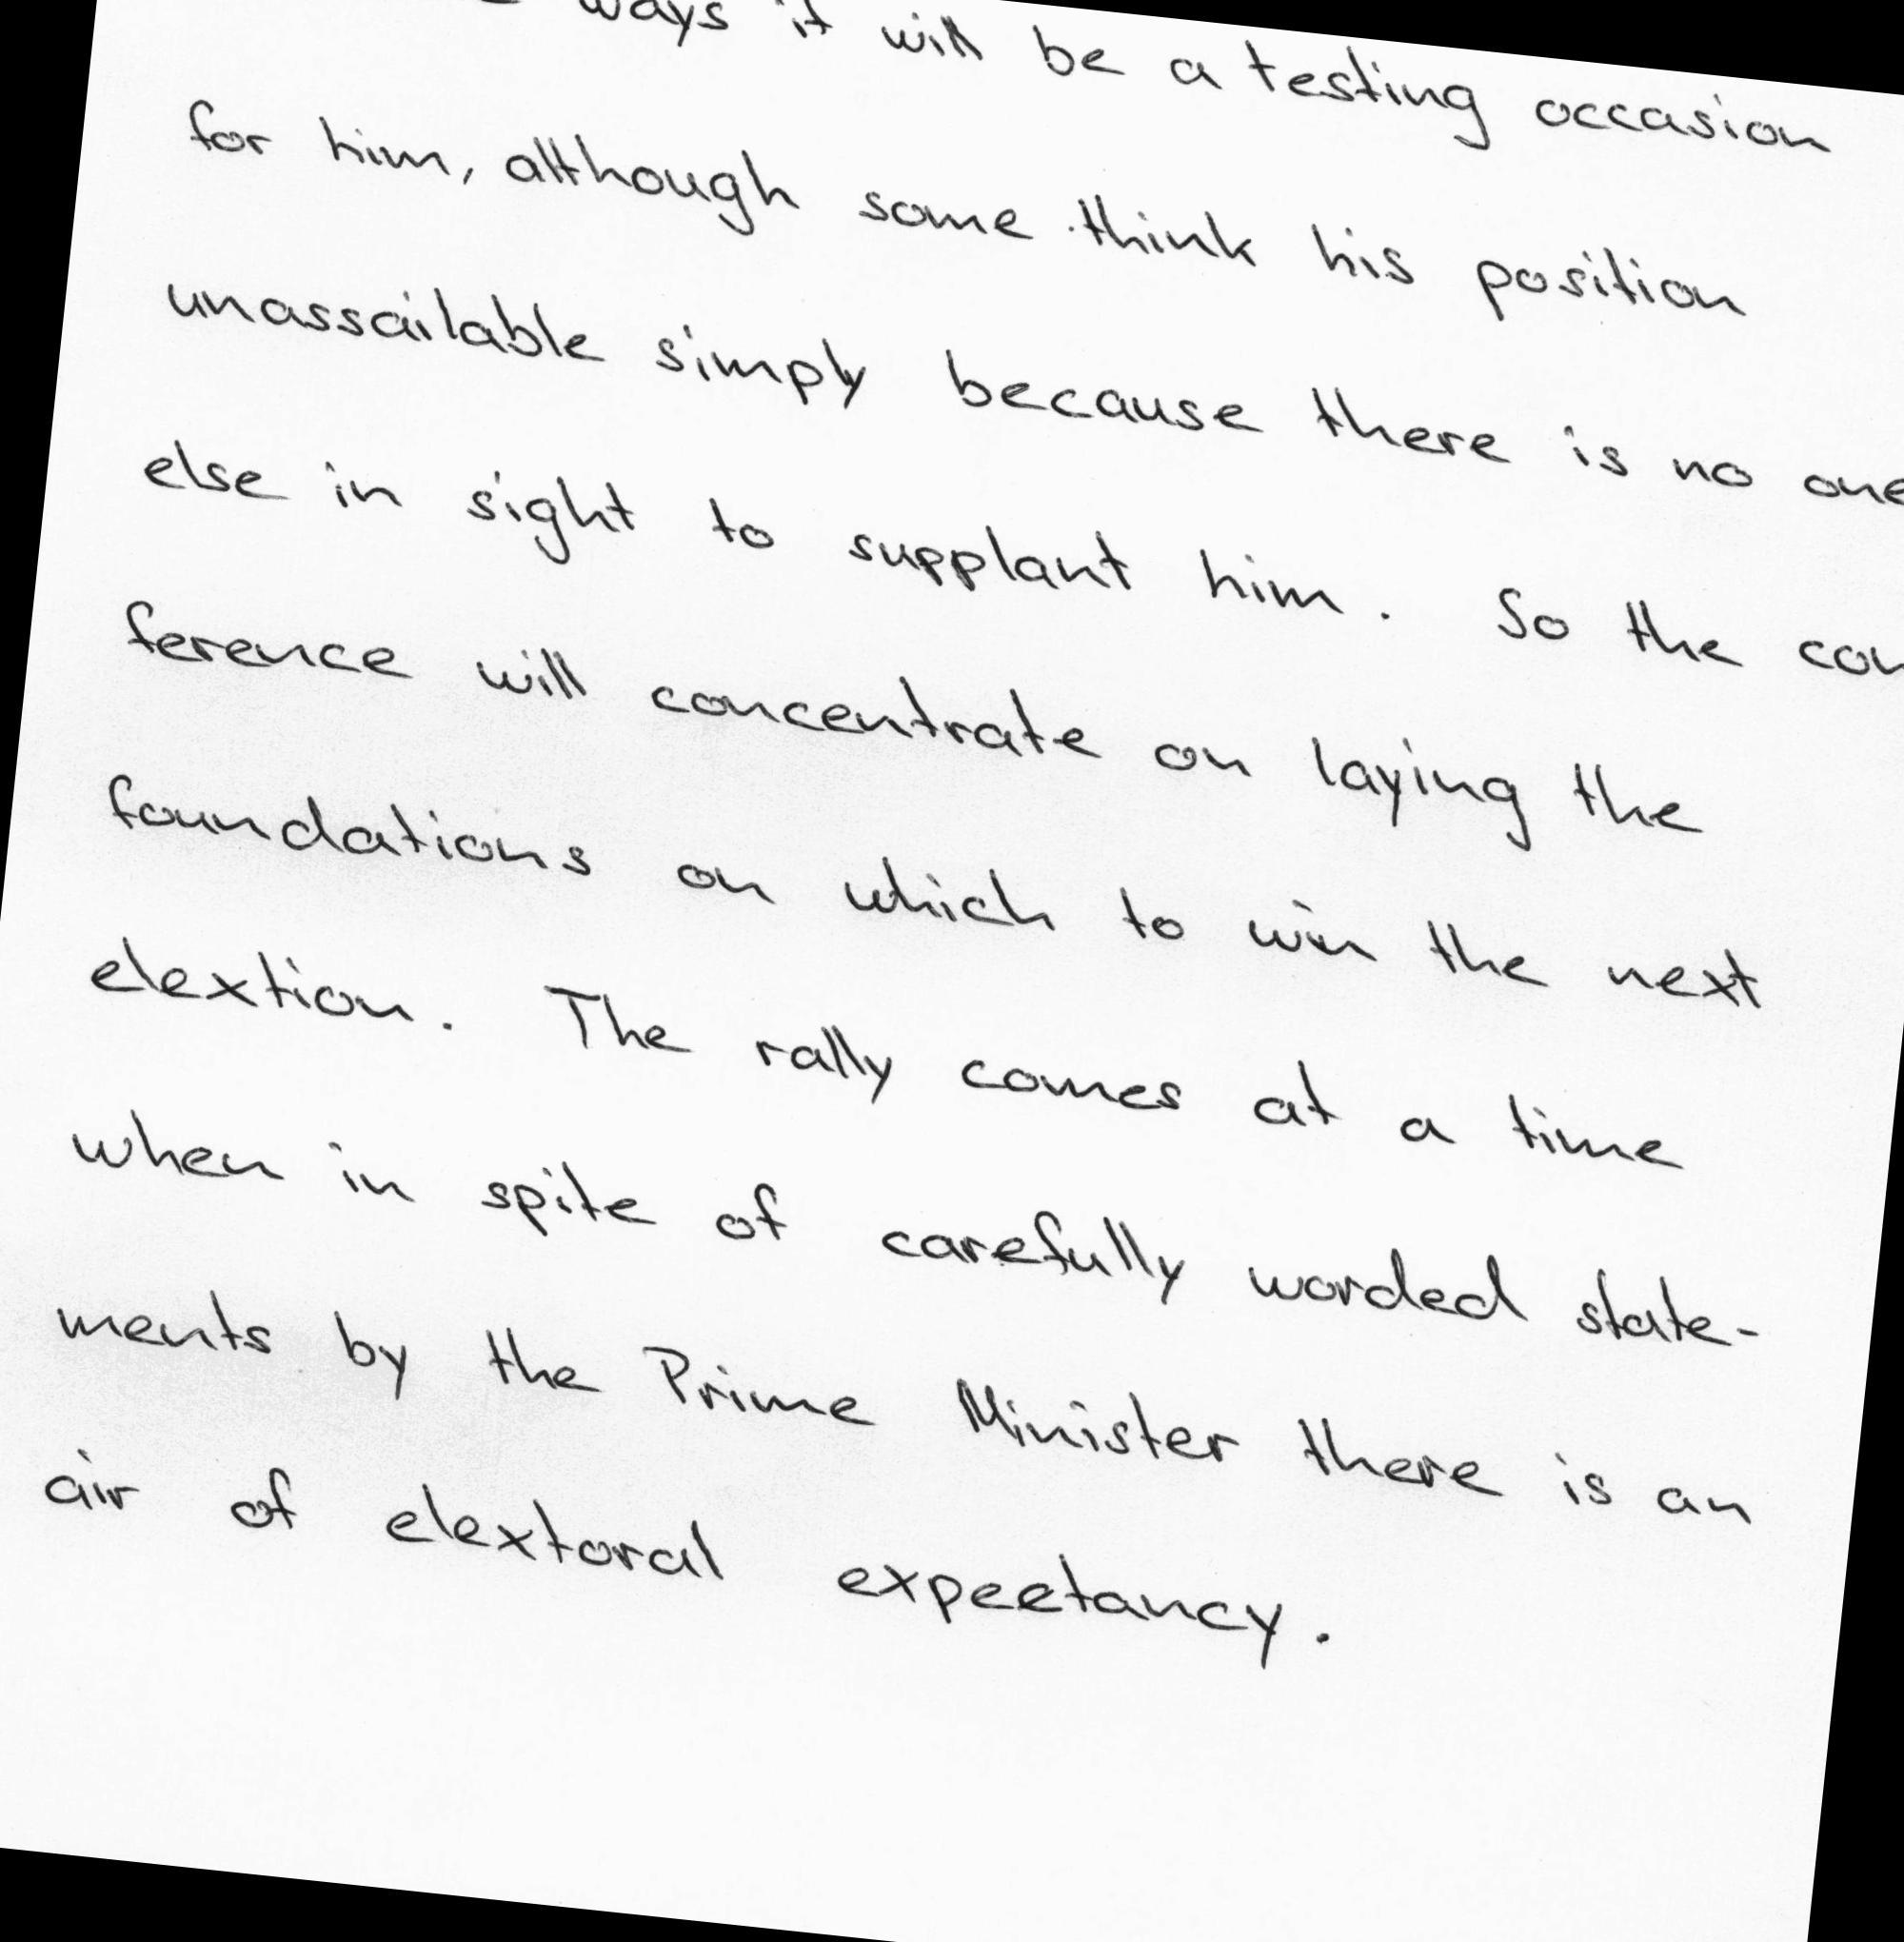 ways it will be a testing occasion
for him, although some think his position
unassailable simply because there is no one
else in sight to supplant him. So the con
ference will concentrate on laying the
foundations on which to win the next
elextion. The rally comes at a time
when in spite of carefully worded state-
ments by the Prime Minister there is an
air of elextoral expectancy.